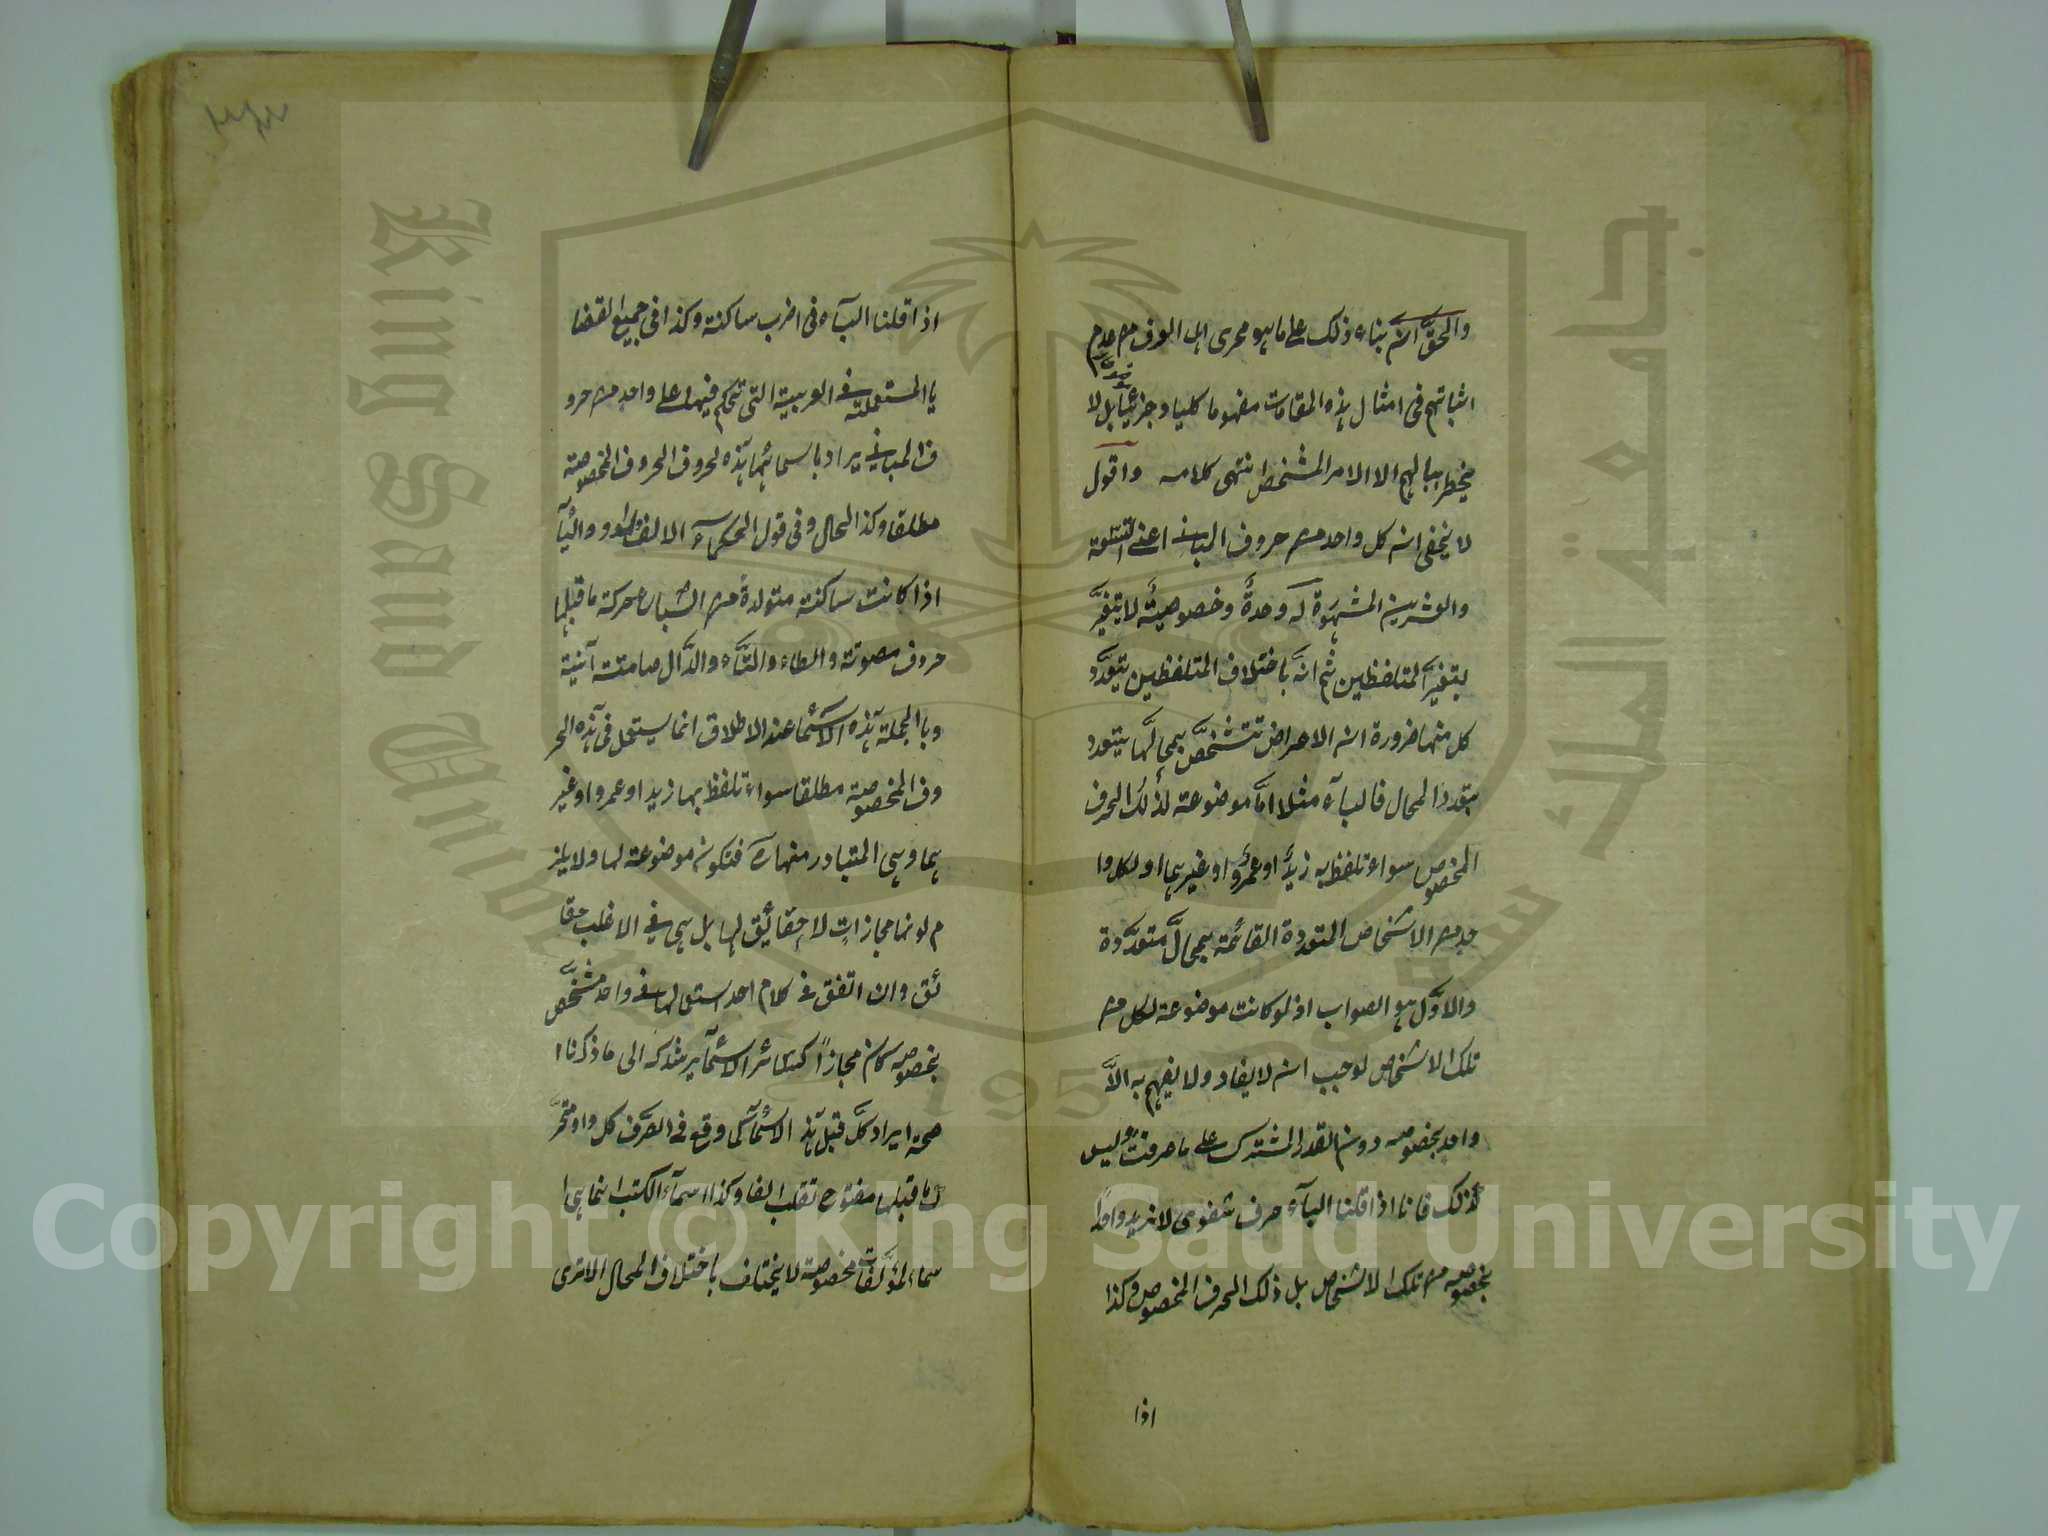 والحق ان بناء ذلك على ما هو مجرى اهل العرف من عدم
اثباتهم فى امثال هذه المقامات مفهوما كليا وجزئيا بل لا
يخطر ببالهم الا الامر المشخص انتهى كلامه واقول
لا يخفى ان كل واحد من حروف المبانى اعنى التسعة
والعشرين المشهورة له وحدة وخصوصية لا يتغير
بتغير المتلفظين ثم انه باختلاف المتلفظين يتعدد
كل منها ضرورة ان الاعراض تتشخص بمحالها يتعدد
بتعدد المحال فالباء مثلا اما موضوعة لذلك الحرف
المخصوص سواء تلفظ به زيد او عمرو او غيرهما او لكل وا
حد من الاشخاص المتعددة القائمة بمحال متعددة
والاول هو الصواب اذ لو كانت موضوعة لكل من
تلك الاشخاص لوجب ان لا يفاد ولا يفهم به الا
واحد بخصوصه دون القدر المشترك على ما عرفت وليس
كذلك فانا اذا قلنا الباء حرف شفوى لا نريد واحدا
بخصوصه من تلك الاشخاص بل ذلك الحرف المخصوص وكذا
اذا
اذا قلنا الباء فى اضرب ساكنة وكذا فى جميع القضا
يا المستعملة فى العربية التى تحكم فيها على واحد من حرو
ف المبانى يراد باسمائها هذه لحروف الحروف المخصوصة
مطلقا وكذا الحال وفى قول الحكماء الالف والواو والياء
اذا كانت ساكنة متولدة من اشباع حركة ما قبلها
حروف مصوتة والطاء والتاء والدال صامتة آنية
وبا الجملة هذه الاسماء عند الاطلاق انما يستعمل فى هذه الحر
وف المخصوصة مطلقا سواء تلفظ بها زيد او عمرو او غير
هما وهى المتبادر منها فتكون موضوعة لها ولا يلز
م لونها مجازات لا حقائق لها بل هى فى الاغلب حقا
ئق وان اتفق فى كلام احد استعمالها فى واحد مشخص
بخصوصه كان مجازا كسائر الاسماء يرشدك الى ما ذكرنا
صحة ايراد كل قبل هذه الاسماء كما وقع فى الصرف كل واو متحر
ك ما قبلها مفتوح تقلب الفا وكذا اسماء الكتب انما هى ا
سماء لمؤلفات مخصوصة لا يختلف باختلاف المحال الا ترى
Copyright © King Saud University
King Saud University
جامعة الملك سعود
1957